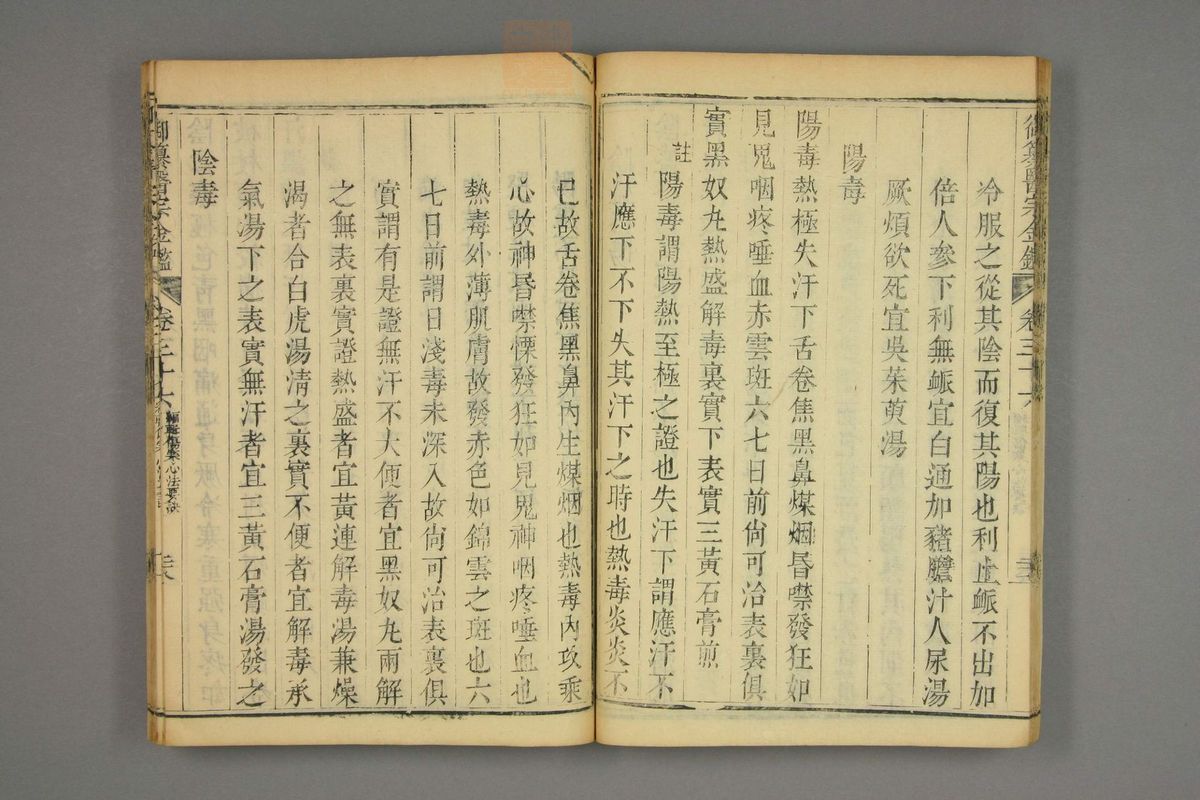 御纂醫宗金鑑 卷三十六
冷服之從其陰而復其陽也利止衇不出加
倍人參下利無衇宜白通加豬膽汁人尿湯
厥煩欲死宜吳茱萸湯
陽毒
陽毒熱極失汗下舌卷焦黑鼻煤烟昏噤發狂如
見鬼咽疼唾血赤雲斑六七日前尙可治表裏俱
實黑奴丸熱盛解毒裏實下表實三黃石膏煎
註
陽毒謂陽熱至極之證也失汗下謂應汗不
汗應下不下失其汗下之時也熱毒炎炎不
已故舌卷焦黑鼻內生煤烟也熱毒內攻乘
心故神昏噤慄發狂如見鬼神咽疼唾血也
熱毒外薄肌膚故發赤色如錦雲之斑也六
七日前謂日淺毒未深入故尙可治表裏俱
實謂有是證無汗不大便者宜黑奴丸兩解
之無表裏實證熱盛者宜黃連解毒湯兼燥
渴者合白虎湯淸之裏實不便者宜解毒承
氣湯下之表實無汗者宜三黃石膏湯發之
陰毒
御纂醫宗金鑑 卷三十六 編輯傷寒心法要訣